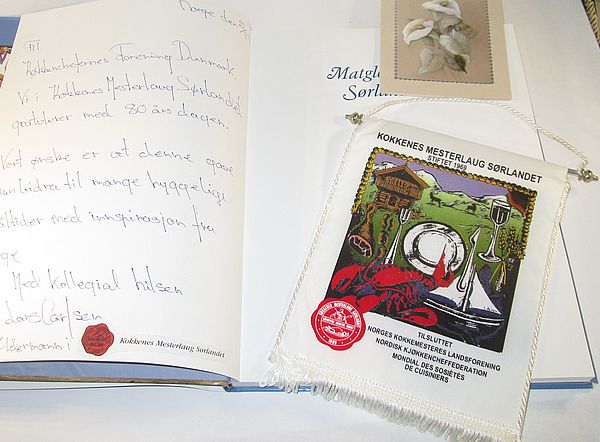 Norge den
Til
Kokkenchefernes Forening Danmark.
Vi i Kokkenes Mesterlaug Sørlandet
gratulerer med 80 års dagen.
Vort ønske er at denne gave
kan bidra til mange hyggelige
måltider med innspirasjon fra
Med Kollegial hilsen
Larsen
Oldermann
Kokkenes Mesterlaug Sørlandet
Matgle
Sørla
KOKKENES MESTERLAUG SØRLANDET
STIFTET 1969
TILSLUTTET
NORGES KOKKEMESTERES LANDSFORENING
NORDISK KJØKKENCHEFFEDERATION
MONDIAL DES SOSIÉTÉS
DE CUISINIERS